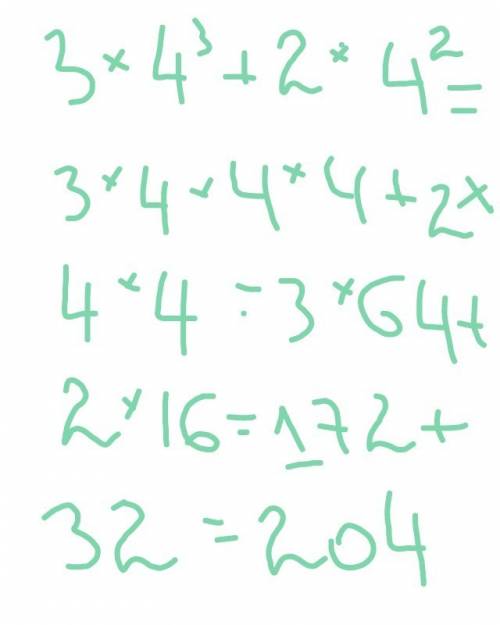 3 × 4³ + 2 × 4² =
3 × 4 × 4 × 4 + 2 ×
4 × 4 = 3 × 64 +
2 × 16 = 172 +
32 = 204